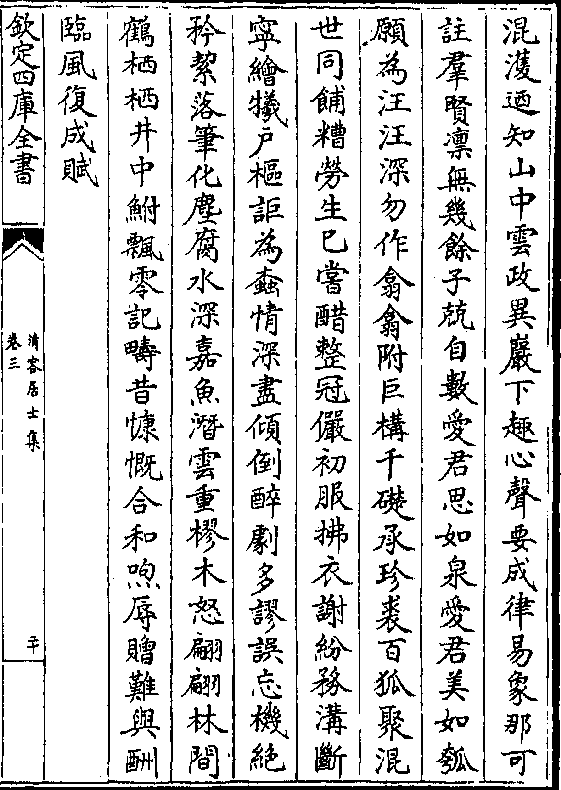 混濩迺知山中雲政異巖下趣心聲要成律易象那可
註羣賢凛無幾餘子兢自數愛君思如泉愛君美如瓠
願為汪汪深勿作翕翕附巨構千礎承珍裘百狐聚混
世同餔糟勞生已嘗醋整冠儼初服拂衣謝紛務溝斷
寧繪犧戶樞詎為蠧情深盡傾倒醉劇多謬誤忘機絶
矜絜落筆化塵腐水深嘉魚潛雲重樛木怒翩翩林間
鶴栖栖井中鮒飄零記疇昔慷慨合和喣辱贈難與酬
臨風復成賦
欽定四庫全書
清容居士集
卷三
二十